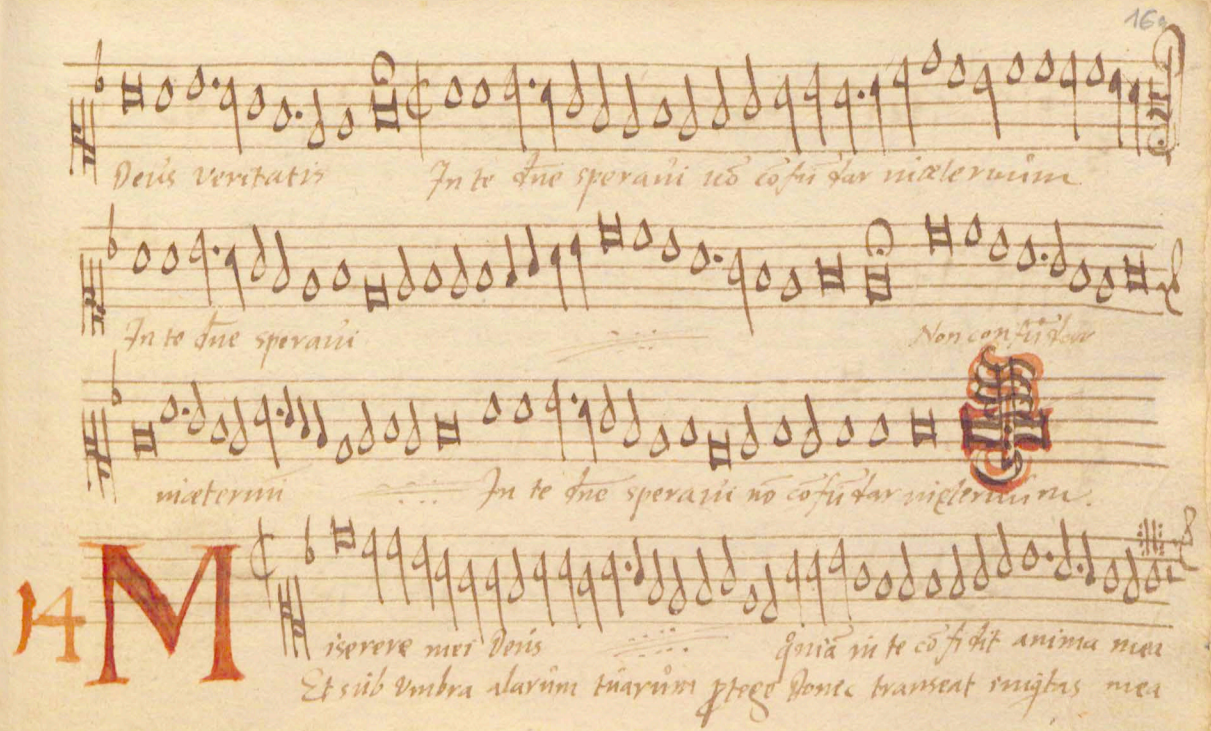 16
Deus veritatis In te dn̄e speraui nō cōfūdar in æternum
In te dn̄e speraui Non confūdar
in æternū In te dn̄e speraui nō cōfūdar in ęternum.
14 Miserere mei Deus qm̄iā in te cōfidit anima mea
Et sub vmbra alarum tuarum ꝓtege Donec transeat iniq̇tas mea